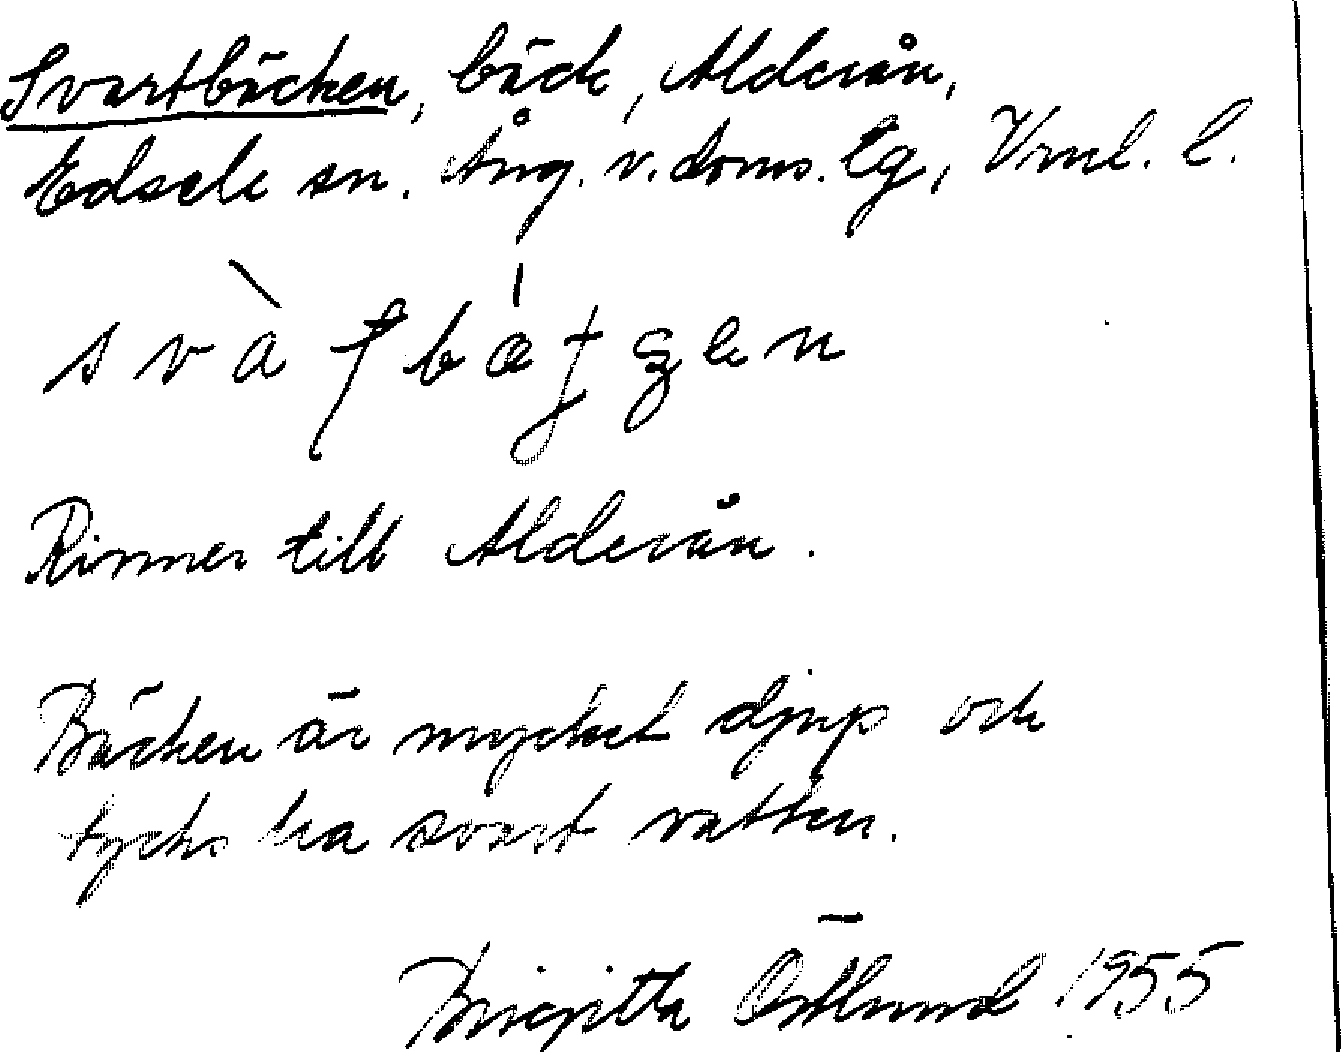 Svartbäcken, bäck, Alderån,
Edsele sn. Ång. v. doms. lg, Vrnl. l.
Rinner till Alderån.
Bäcken är mycket djup och
tycks ha svart vatten.
Birgitta Östlund 1955